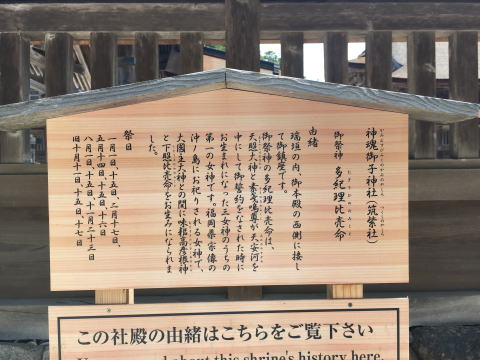 神魂御子神社（筑紫社）
御祭神 多紀理比売命
由緒
瑞垣の内、御本殿の西側に接し
て御鎮座です。
御祭神の多紀理比売命は、
天照大神と素戔嗚尊が天安河を
中にして御誓約をなされた時に
お生まれになった三女神のうちの
第一の女神です。福岡県宗像の
沖ノ島にお祀りされる女神で、
大國主大神との間に味耜高彦根神
と下照比売命をお生みになられま
した。
祭日
一月一日、十五日、二月十七日、
五月十四日、十五日、十六日
八月一日、十五日、十一月二十三日
旧十月十一日、十五日、十七日
この社殿の由緒はこちらをご覧下さい
You can read about this shrine's history here.